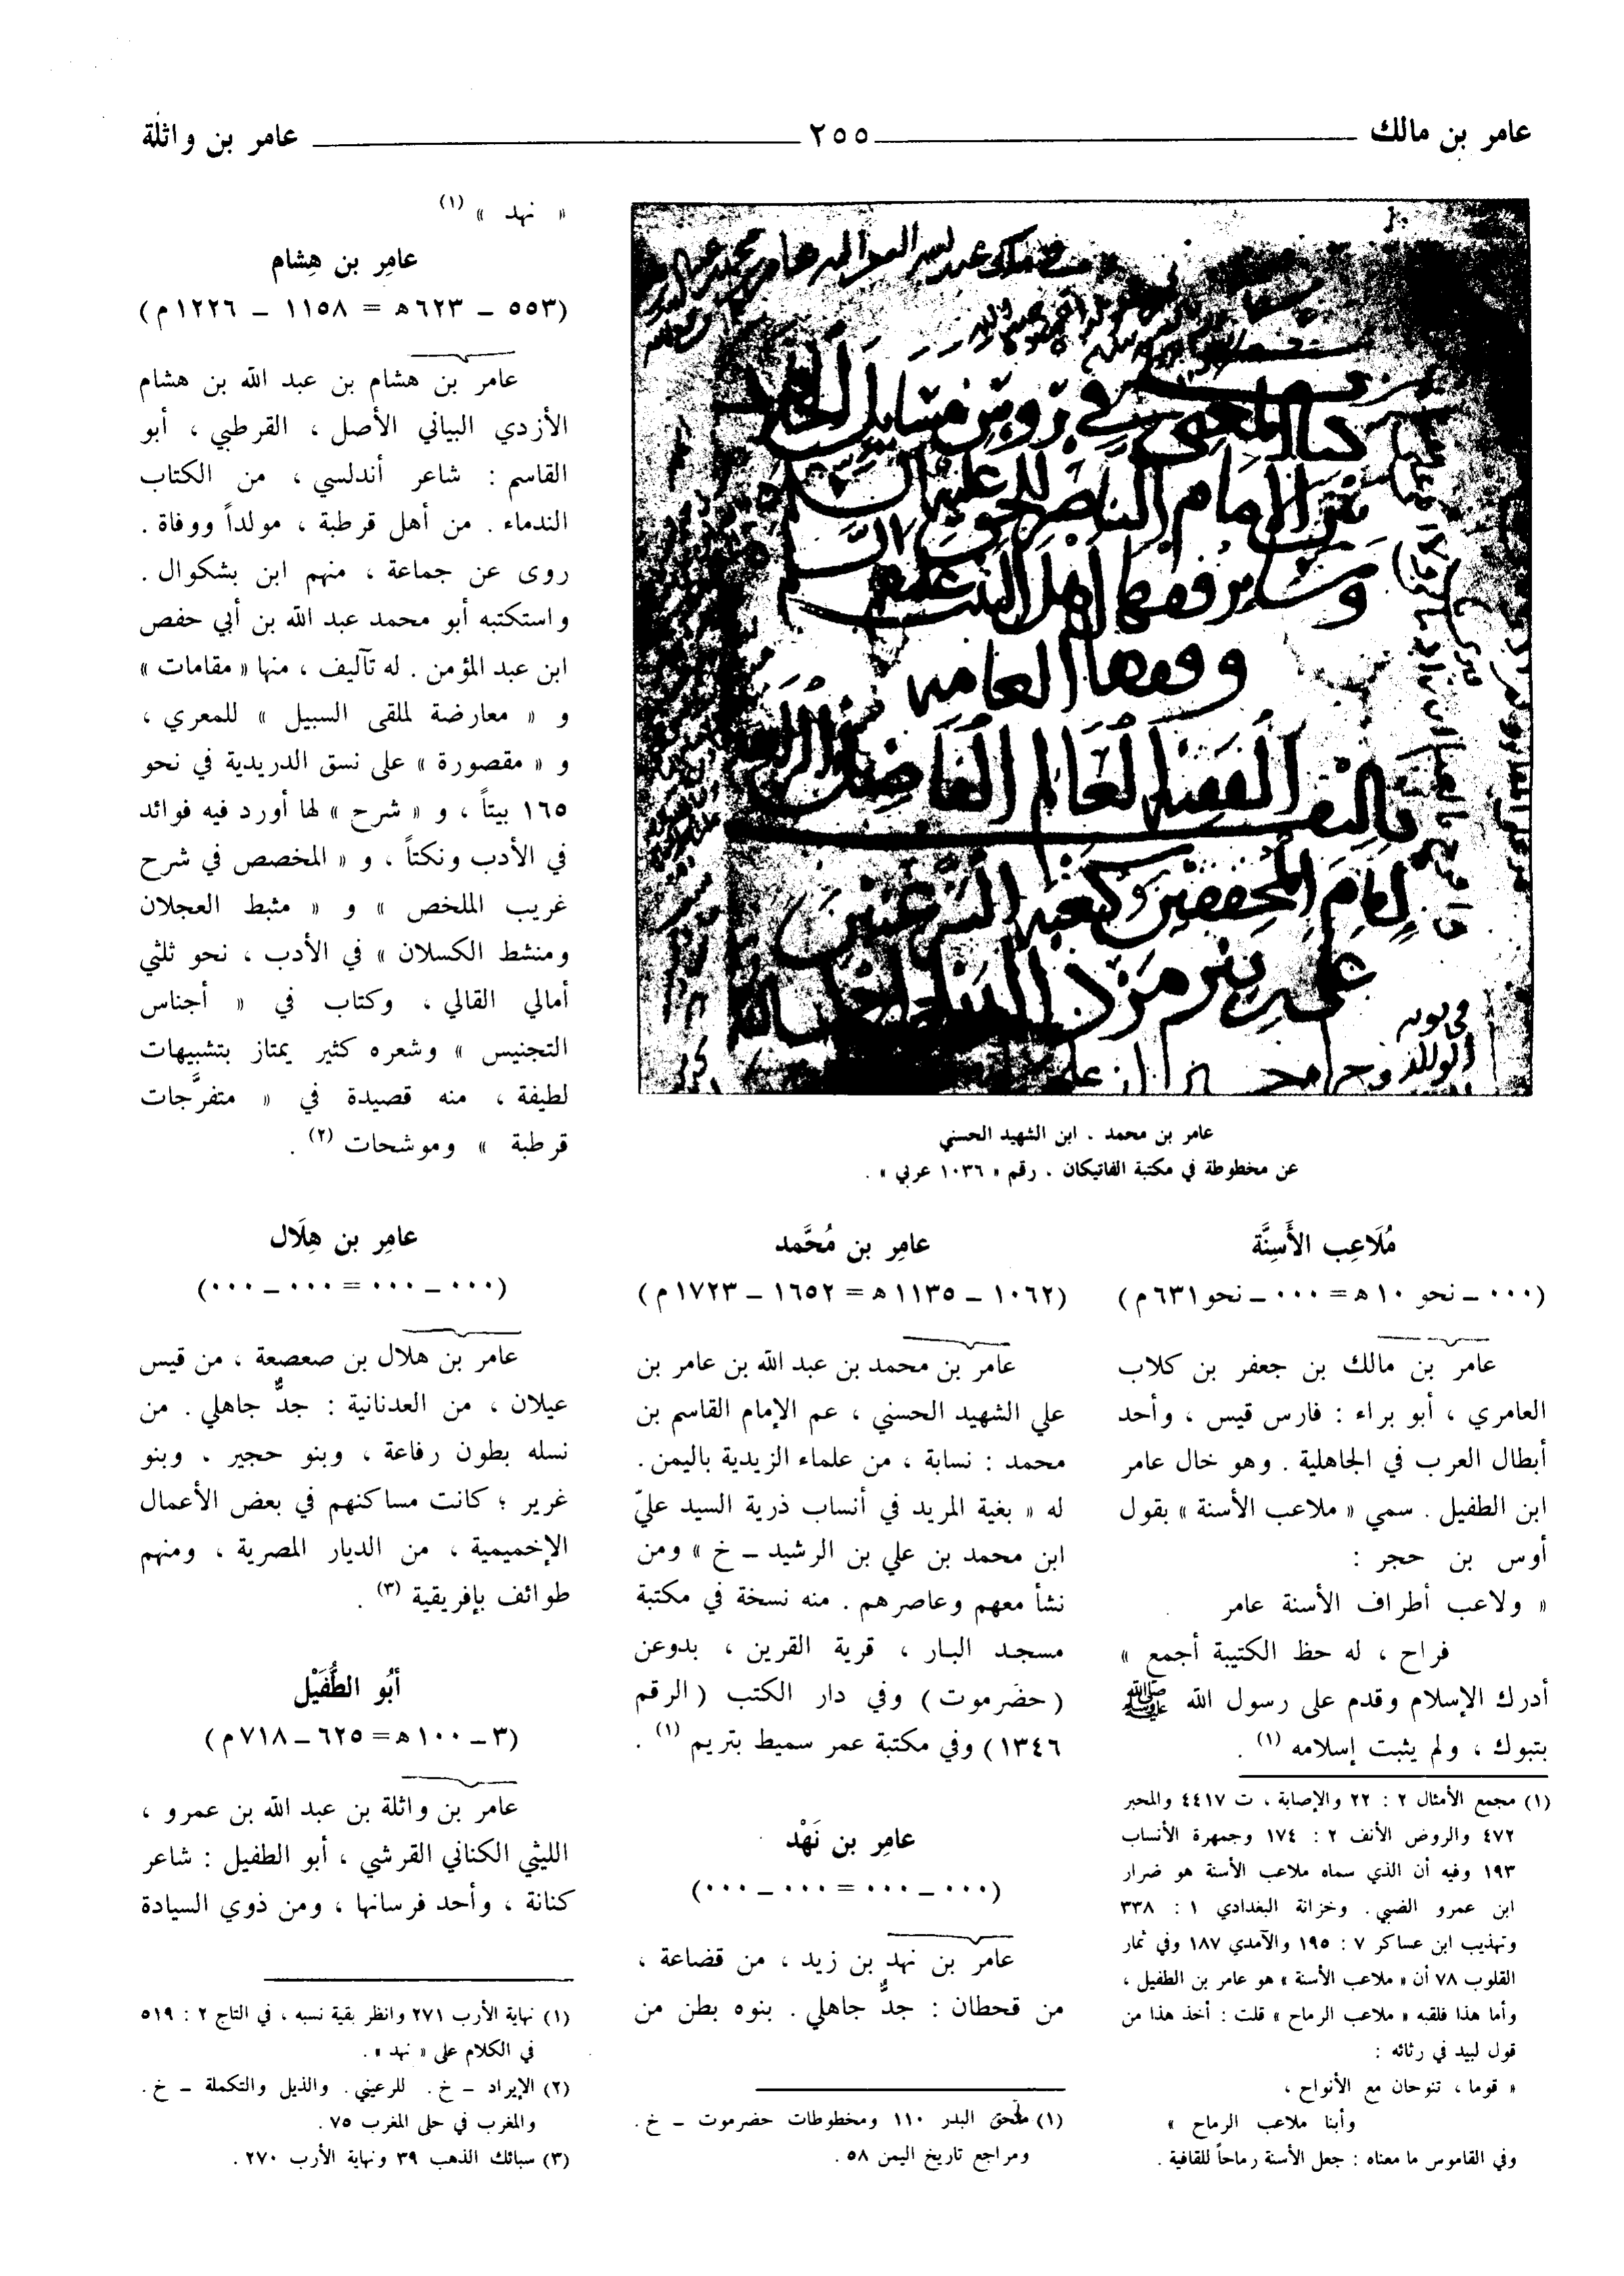 عامر بن مالك
٢٥٥
عامر بن واثلة
عامر بن محمد ، ابن الشهيد الحسني
عن مخطوطة في مكتبة الفاتيكان ، رقم « ١٠٣٦ عربي » .
مُلَاعِب الأَسِنَّة
(٠٠٠ – نحو ١٠ هـ = ٠٠٠ – نحو ٦٣١ م)
عامر بن مالك بن جعفر بن كلاب
العامري ، أبو براء : فارس قيس ، وأحد
أبطال العرب في الجاهلية . وهو خال عامر
ابن الطفيل . سمي « ملاعب الأسنة » بقول
أوس بن حجر :
« ولاعب أطراف الأسنة عامر
فراح ، له حظ الكتيبة أجمع »
أدرك الإسلام وقدم على رسول الله ﷺ
بتبوك ، ولم يثبت إسلامه (١) .
(١) مجمع الأمثال ٢ : ٢٢ والإصابة ، ت ٤٤١٧ والمحبر
٤٧٢ والروض الأنف ٢ : ١٧٤ وجمهرة الأنساب
١٩٣ وفيه أن الذي سماه ملاعب الأسنة هو ضرار
ابن عمرو الضبي . وخزانة البغدادي ١ : ٣٣٨
وتهذيب ابن عساكر ٧ : ١٩٥ والآمدي ١٨٧ وفي ثمار
القلوب ٧٨ أن « ملاعب الأسنة » هو عامر بن الطفيل ،
وأما هذا فلقبه « ملاعب الرماح » قلت : أخذ هذا من
قول لبيد في رثائه :
« قوما ، تنوحان مع الأنواح ،
وأبنا ملاعب الرماح »
وفي القاموس ما معناه : جعل الأسنة رماحاً للقافية .
عامِر بن مُحَّمد
(١٠٦٢ – ١١٣٥ هـ = ١٦٥٢ – ١٧٢٣ م)
عامر بن محمد بن عبد الله بن عامر بن
علي الشهيد الحسني ، عم الإمام القاسم بن
محمد : نسابة ، من علماء الزيدية باليمن .
له « بغية المريد في أنساب ذرية السيد عليّ
ابن محمد بن علي بن الرشيد – خ » ومن
نشأ معهم وعاصرهم . منه نسخة في مكتبة
مسجد البار ، قرية القرين ، بدوعن
(حضرموت) وفي دار الكتب (الرقم
١٣٤٦) وفي مكتبة عمر سميط بتريم (١) .
عامِر بن نَهْد
(٠٠٠ – ٠٠٠ = ٠٠٠ – ٠٠٠)
عامر بن نهد بن زيد ، من قضاعة ،
من قحطان : جدٌّ جاهلي . بنوه بطن من
(١) ملحق البدر ١١٠ ومخطوطات حضرموت – خ .
ومراجع تاريخ اليمن ٥٨ .
« نهد » (١)
عامِر بن هِشام
(٥٥٣ – ٦٢٣ هـ = ١١٥٨ – ١٢٢٦ م)
عامر بن هشام بن عبد الله بن هشام
الأزدي البياني الأصل ، القرطبي ، أبو
القاسم : شاعر أندلسي ، من الكتاب
الندماء . من أهل قرطبة ، مولداً ووفاة .
روى عن جماعة ، منهم ابن بشكوال .
واستكتبه أبو محمد عبد الله بن أبي حفص
ابن عبد المؤمن . له تآليف ، منها « مقامات »
و « معارضة لملقى السبيل » للمعري ،
و « مقصورة » على نسق الدريدية في نحو
١٦٥ بيتاً ، و « شرح » لها أورد فيه فوائد
في الأدب ونكتاً ، و « المخصص في شرح
غريب الملخص » و « مثبط العجلان
ومنشط الكسلان » في الأدب ، نحو ثلثي
أمالي القالي ، وكتاب في « أجناس
التجنيس » وشعره كثير يمتاز بتشبيهات
لطيفة ، منه قصيدة في « متفرَّجات
قرطبة » وموشحات (٢) .
عامِر بن هِلَال
(٠٠٠ – ٠٠٠ = ٠٠٠ – ٠٠٠)
عامر بن هلال بن صعصعة ، من قيس
عيلان ، من العدنانية : جدٌّ جاهلي . من
نسله بطون رفاعة ، وبنو حجير ، وبنو
غرير ؛ كانت مساكنهم في بعض الأعمال
الإخميمية ، من الديار المصرية ، ومنهم
طوائف بإفريقية (٣) .
أبُو الطُّفَيْل
(٣ – ١٠٠ هـ = ٦٢٥ – ٧١٨ م)
عامر بن واثلة بن عبد الله بن عمرو ،
الليثي الكناني القرشي ، أبو الطفيل : شاعر
كنانة ، وأحد فرسانها ، ومن ذوي السيادة
(١) نهاية الأرب ٢٧١ وانظر بقية نسبه ، في التاج ٢ : ٥١٩
في الكلام على « نهد » .
(٢) الإيراد – خ . للرعيني . والذيل والتكملة – خ .
والمغرب في حلى المغرب ٧٥ .
(٣) سبائك الذهب ٣٩ ونهاية الأرب ٢٧٠ .